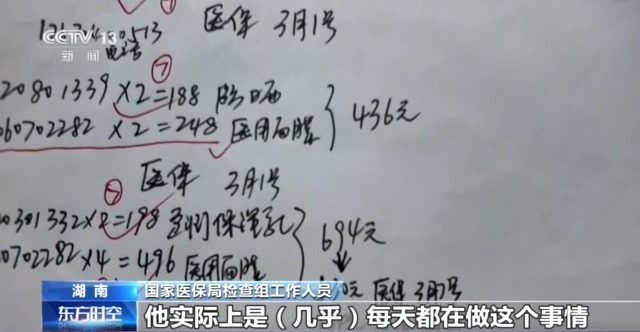 CCTV 13
新闻
513
医保 3月1号
电话
⑦
20801339 ×2=188
060702282 ×2=248 医用面膜
436元
医保 3月1号
0301332×2=198
0702282×4=496 医用面膜
694元
医保 3月
湖南
国家医保局检查组工作人员
东方时空
他实际上是（几乎）每天都在做这个事情